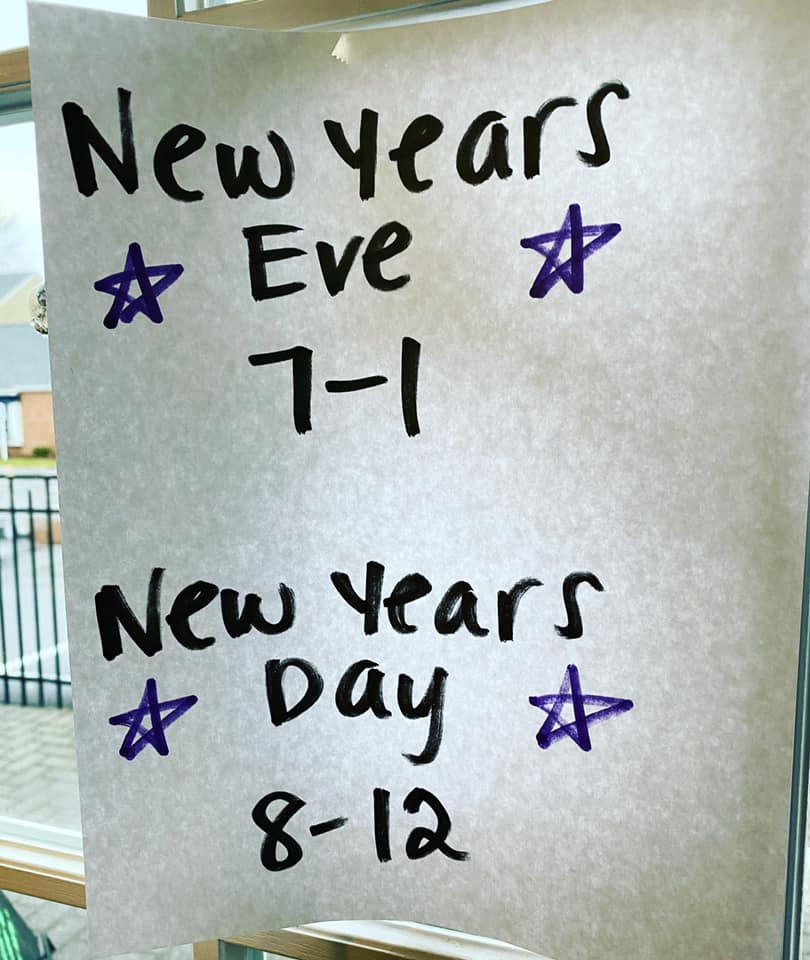 New Years
Eve
7-1
New Years
Day
8-12